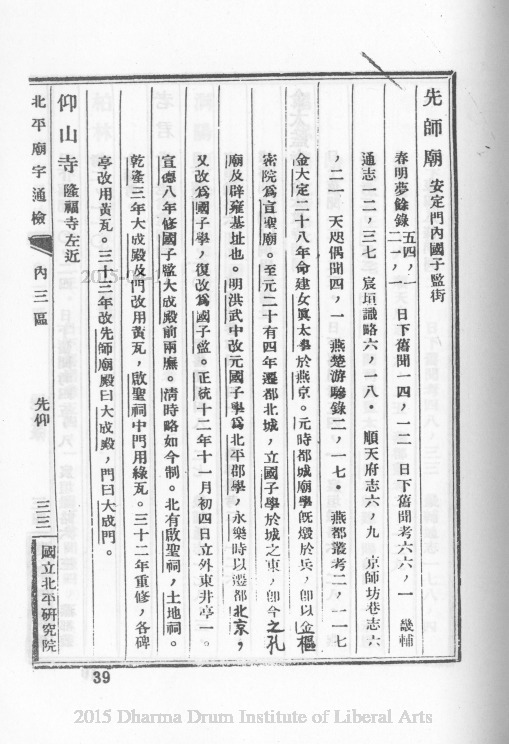 先師廟 安定門內國子監街
春明夢餘錄 五四，一 二一，一 日下舊聞一四，一二 日下舊聞考六六，一 畿輔
通志一二，三七 宸垣識略六，一八． 順天府志六，九 京師坊巷志六
，二一 天咫偶聞四，一 燕楚游驂錄二，一七． 燕都叢考二，一一七
金大定二十八年命建女眞太學於燕京。元時都城廟學旣燬於兵，卽以金樞
密院爲宣聖廟。至元二十有四年遷都北城，立國子學於城之東，卽今之孔
廟及辟雍基址也。明洪武中改元國子學爲北平郡學，永樂時以遷都北京，
又改爲國子學，復改爲國子監。正統十二年十一月初四日立外東井亭一。
宣德八年修國子監大成殿前兩廡。淸時略如今制。北有啟聖祠，土地祠。
乾隆三年大成殿及門改用黃瓦，啟聖祠中門用綠瓦。三十二年重修，各碑
亭改用黃瓦。三十三年改先師廟殿曰大成殿，門曰大成門。
仰山寺 隆福寺左近
北平廟宇通檢 內三區 先仰 三三 國立北平研究院
39
2015 Dharma Drum Institute of Liberal Arts